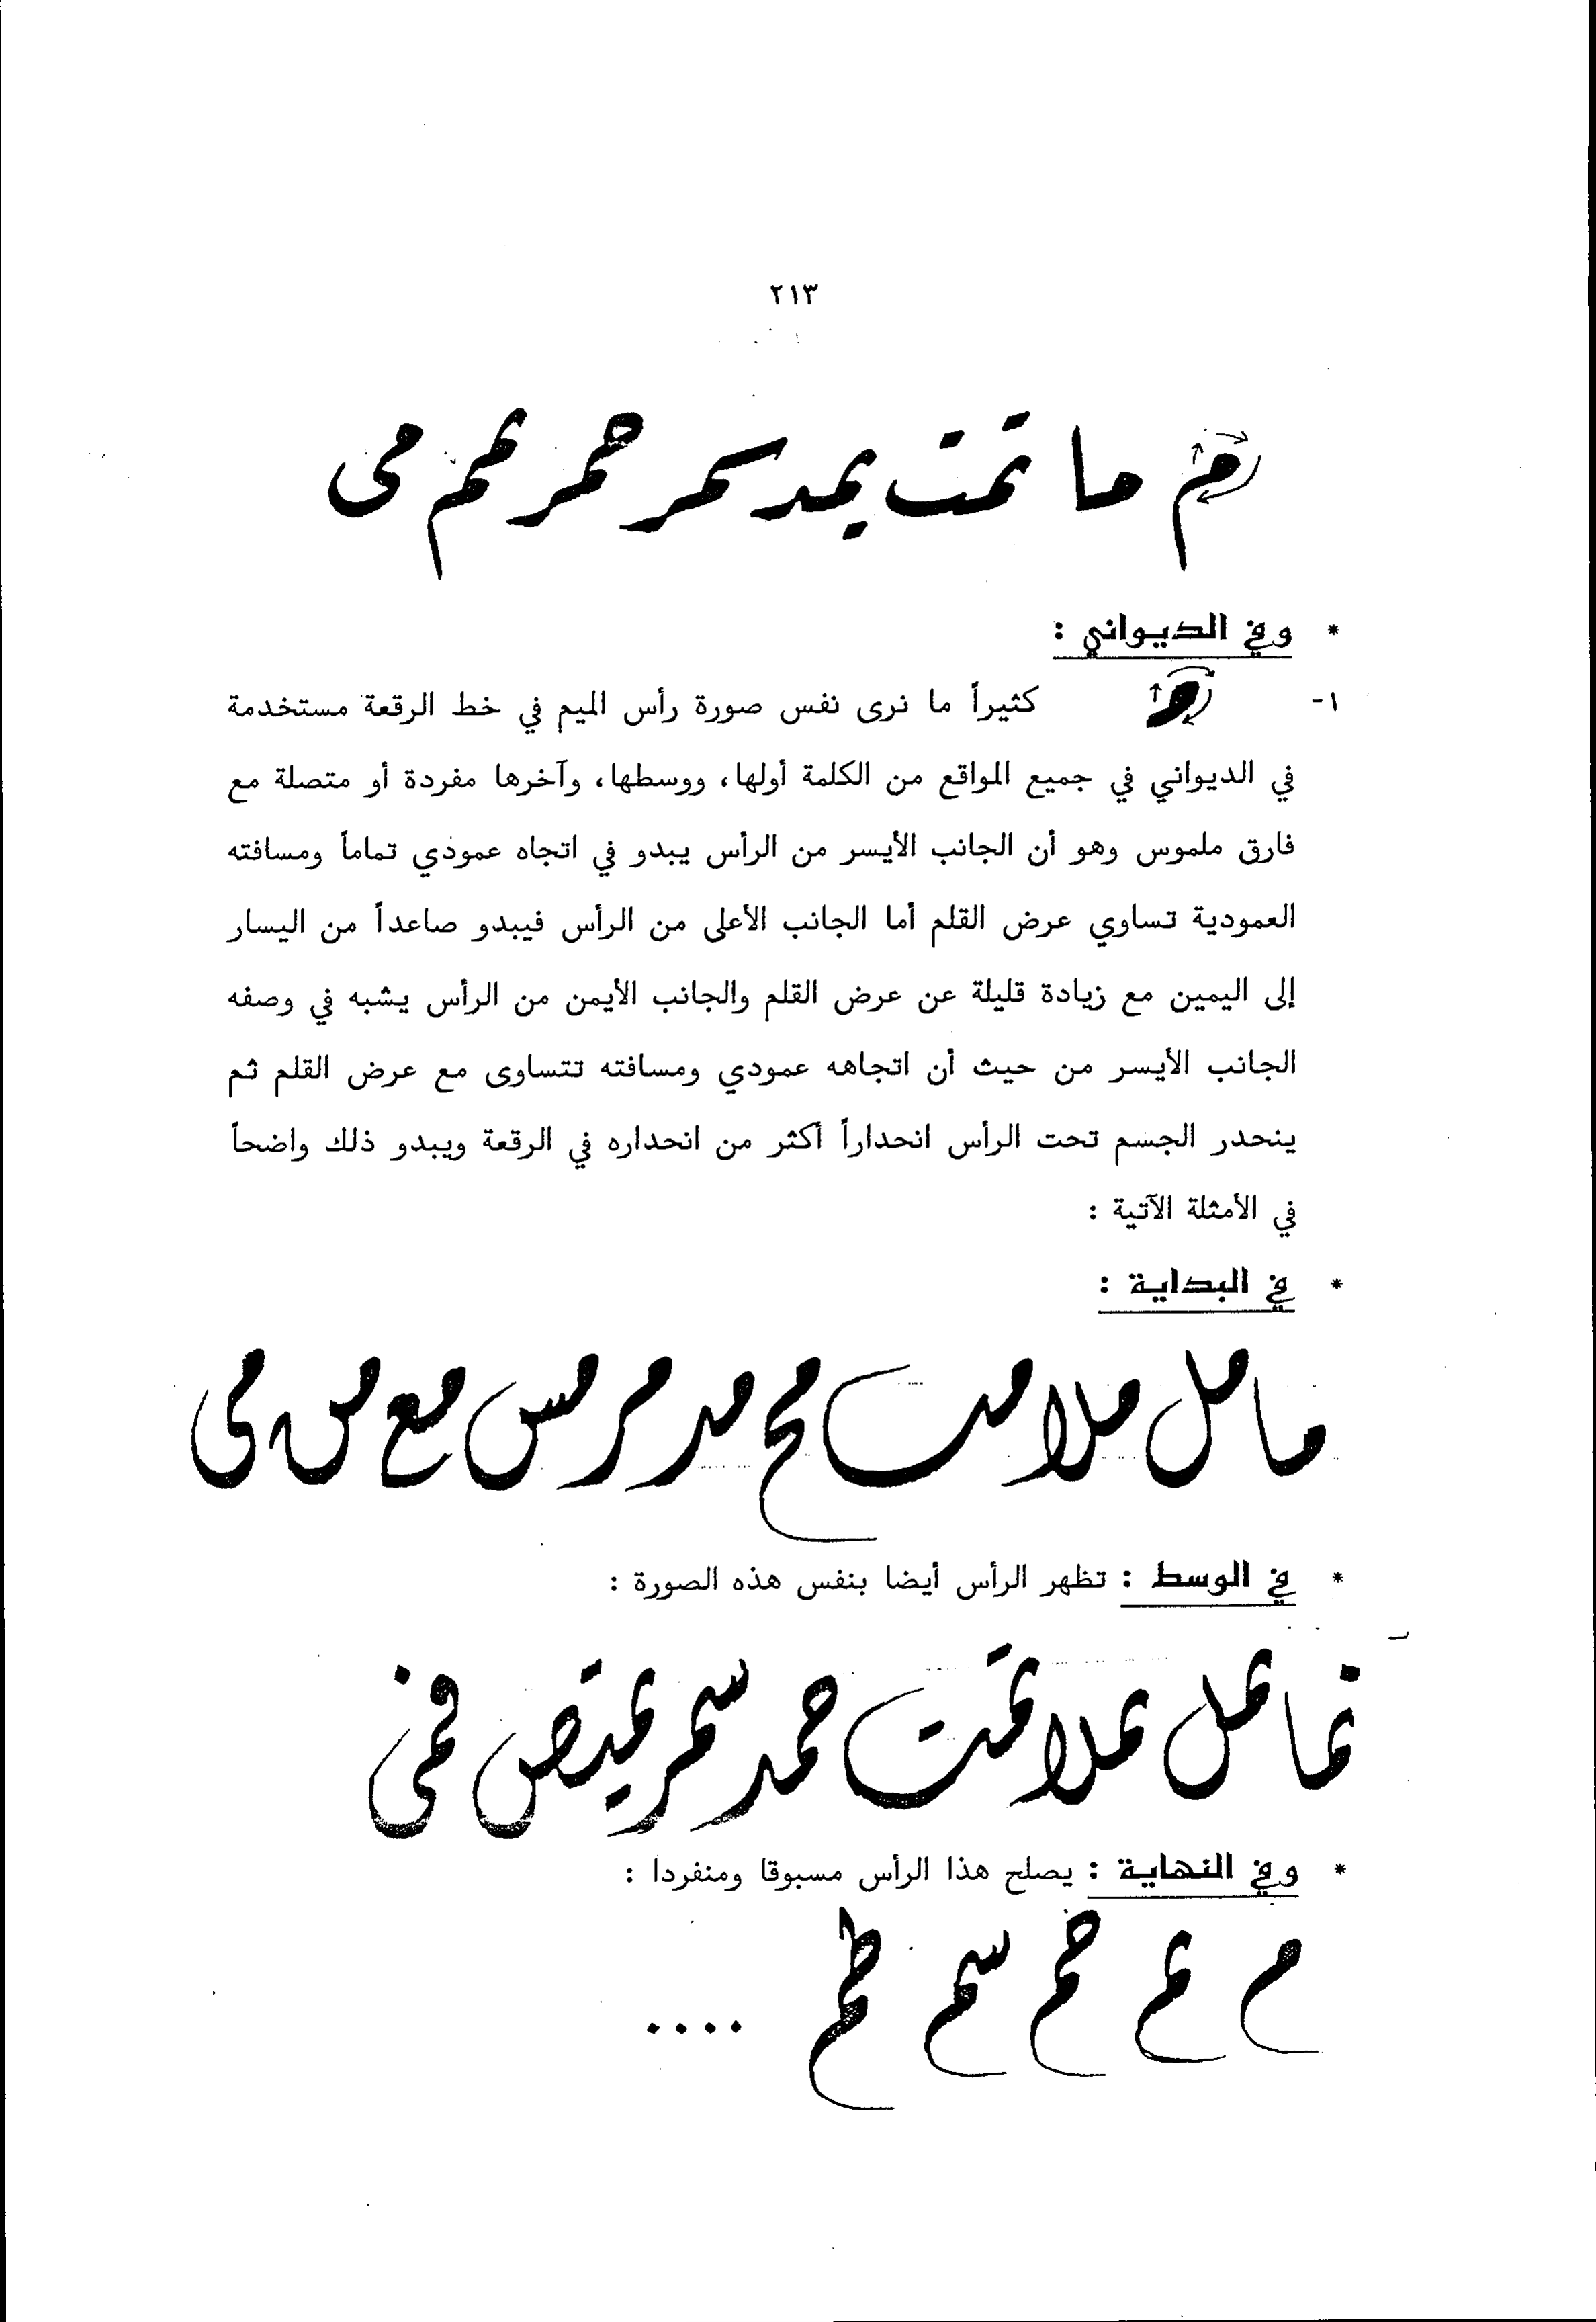 ٢١٣
م ما تمت يمد سمر همر يمم مى
* وفي الديواني :
١- كثيراً ما نرى نفس صورة رأس الميم في خط الرقعة مستخدمة
في الديواني في جميع المواقع من الكلمة أولها، ووسطها، وآخرها مفردة أو متصلة مع
فارق ملموس وهو أن الجانب الأيسر من الرأس يبدو في اتجاه عمودي تماماً ومسافته
العمودية تساوي عرض القلم أما الجانب الأعلى من الرأس فيبدو صاعداً من اليسار
إلى اليمين مع زيادة قليلة عن عرض القلم والجانب الأيمن من الرأس يشبه في وصفه
الجانب الأيسر من حيث أن اتجاهه عمودي ومسافته تتساوى مع عرض القلم ثم
ينحدر الجسم تحت الرأس انحداراً أكثر من انحداره في الرقعة ويبدو ذلك واضحاً
في الأمثلة الآتية :
* في البداية :
ما مل ملا مت مح مد مر مس مع مں مى
* في الوسط : تظهر الرأس أيضا بنفس هذه الصورة :
نما يمل يملا تمت حمد سمر يمتص فمى
* وفي النهاية : يصلح هذا الرأس مسبوقا ومنفردا :
م يم حم سم طم ....